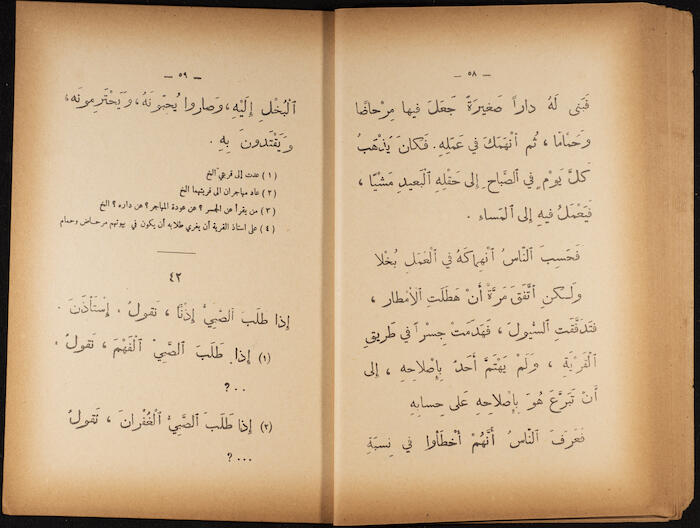 — ٥٨ —
فَبَنى لَهُ داراً صَغيرَةً جَعَلَ فيها مِرْحاضًا
وَحَمّامًا ، ثُم ٱنْهَمَكَ في عَمَلِهِ. فَكانَ يَذْهَبُ
كلَّ يَوْمٍ في الصَّباحِ إِلى حَقْلِهِ ٱلْبَعيدِ مَشْيًا ،
فَيَعْمَلُ فيهِ إِلى ٱلْمَساء .
فَحَسِبَ ٱلنّاسُ ٱنْهِماكَهُ في ٱلْعَمَلِ بُخْلا
وَلٰكِنِ ٱتَّفَقَ مَرَّةً أَنْ هَطَلَتِ ٱلأَمْطار ،
فَتَدَفَّقَتِ ٱلسُّيولُ، فَهَدَمَتْ جِسْراً في طَريق
ٱلْقَرْيَةِ ، وَلَمْ يَهْتَمَّ أَحَدٌ بِإِصْلاحِهِ ، إِلى
أَنْ تَبَرَّعَ هُوَ بِإِصْلاحِهِ عَلى حِسابِهِ
فَعَرَفَ ٱلنّاسُ أَنَّهُمْ أَخْطَأوا في نِسبَةِ
— ٥٩ —
ٱلْبُخْلِ إِلَيْهِ، وَصاروا يُحبّونَهُ، وَيَحْتَرِمونَه،
وَيَقْتَدونَ بِهِ .
(١) عدت إلى قرعي الخ
(٢) عاد مهاجران الى قريتهما الخ
(٣) من يقرأ عن الجسر ؟ عن عودة المهاجر ؟ عن داره ؟ الخ
(٤) على استاذ القرية أن يغري طلابه أن يكون في بيوتهم مرحاض وحمام
٤٢
إِذا طَلَبَ ٱلصَّبيُّ إِذْنًا ، نَقولُ : إِسْتَأْذَنَ .
(١) إِذا طَلَبَ ٱلصَّبيُّ ٱلْفَهْمَ ، نَقولُ :
؟ ...
(٢) إِذا طَلَبَ ٱلصَّبيُّ ٱلْغُفْرانَ ، نَقولُ
؟ ...